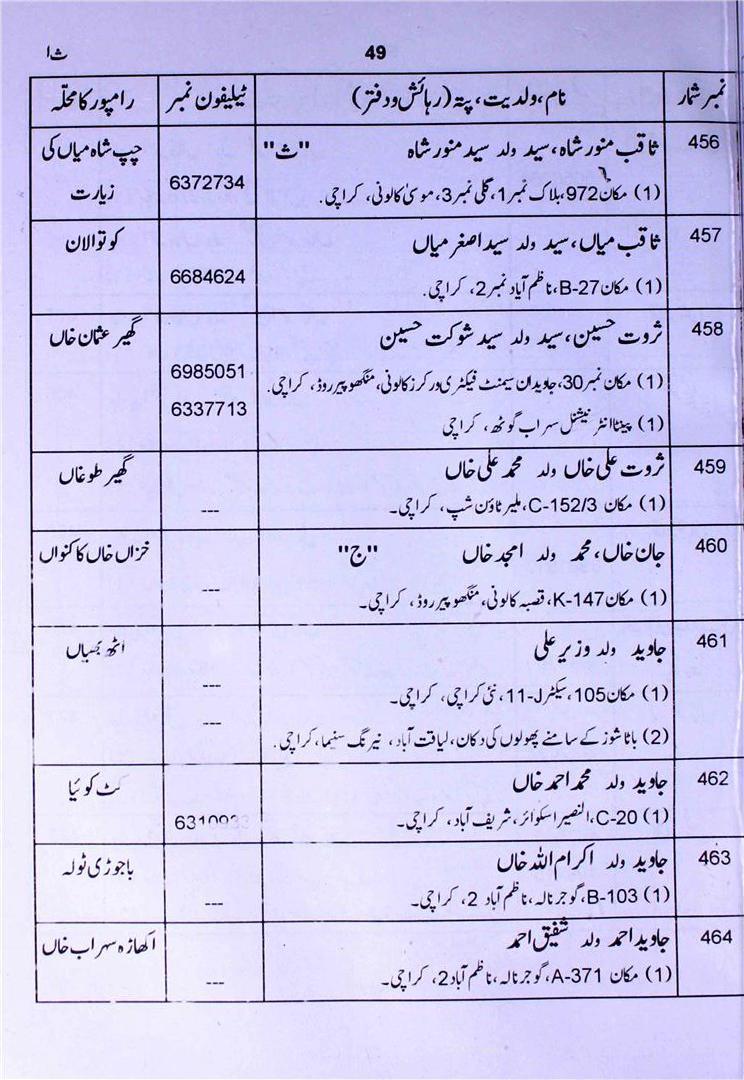 49 ث ا
نمبر شمار نام، ولدیت، پتہ (رہائش و دفتر) ٹیلیفون نمبر رامپور کا محلّہ
456 ثاقب منور شاہ، سید ولد سید منور شاہ "ث" چپ شاہ میاں کی
(1) مکان 972، بلاک نمبر 1، گلی نمبر 3، موسیٰ کالونی، کراچی. 6372734 زیارت
457 ثاقب میاں، سید ولد سید اصغر میاں کوتوالان
(1) مکان B-27، ناظم آباد نمبر 2، کراچی. 6684624
458 ثروت حسین، سید ولد سید شوکت حسین گھیر عثمان خاں
(1) مکان نمبر 30، جاویدان سیمنٹ فیکٹری ورکرز کالونی، منگھو پیر روڈ، کراچی. 6985051
(1) پیٹا انٹرنیشنل سہراب گوٹھ، کراچی 6337713
459 ثروت علی خاں ولد محمد علی خاں گھیر طوغاں
(1) مکان C-152/3، ملیر ٹاؤن شپ، کراچی۔ ---
460 جان خاں، محمد ولد امجد خاں "ج" خزاں خاں کا کنواں
(1) مکان K-147، قصبہ کالونی، منگھو پیر روڈ، کراچی۔ ---
461 جاوید ولد وزیر علی اٹھ بھیاں
(1) مکان 105، سیکٹر 11-J، نئی کراچی، کراچی۔ ---
(2) باٹا شوز کے سامنے پھولوں کی دکان، لیاقت آباد، نیرنگ سنیما، کراچی. ---
462 جاوید ولد محمد احمد خاں کٹ کوئیا
(1) C-20، النصیر اسکوائر، شریف آباد، کراچی۔ 6310933
463 جاوید ولد اکرام اللہ خاں باجوڑی ٹولہ
(1) B-103، گوجر نالہ، ناظم آباد 2، کراچی۔ ---
464 جاوید احمد ولد شفیق احمد اکھاڑہ سہراب خاں
(1) مکان A-371، گوجر نالہ، ناظم آباد 2، کراچی۔ ---